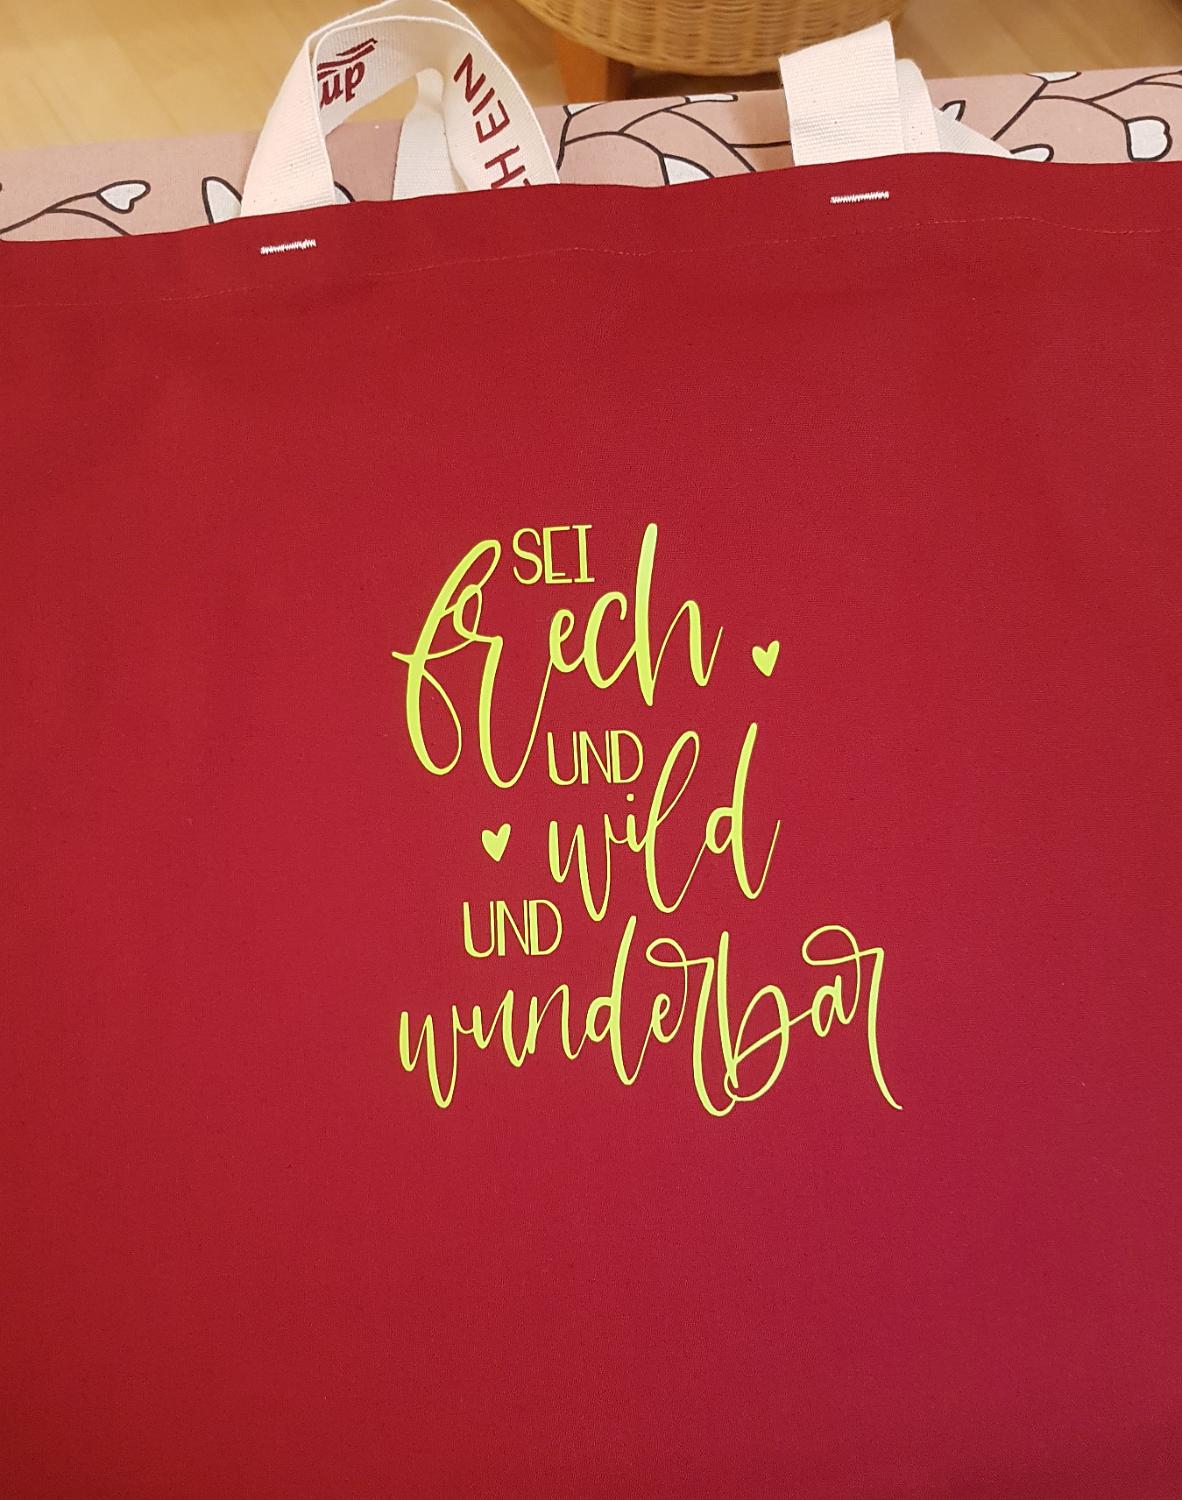 dm
HEIN
SEI
frech
UND
wild
UND
wunderbar